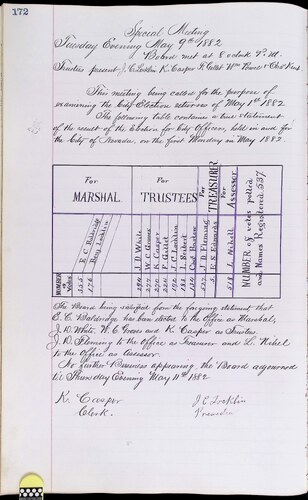 172
Special Meeting
Tuesday Evening May 9th 1882
Board met at 8 oclock P.M.
Trustees present J. C. Locklin K. Casper F. Gallet Wm Powell & Chas Kent.
This meeting being called for the purpose of
examining the City Election returns of May 1st 1882
The following table contains a true statement
of the result of the Election for City Officers, held in and for
the City of Nevada, on the first Monday in May 1882.
For MARSHAL
For TRUSTEES
For TREASURER
For Assessor
NUMBER of votes polled and Names Registered 537
E. C. Baldridge
J. D. White
W. C. Groves
K. Casper
F. Gallet
J. C. Locklin
J. D. Fleming
E. S. Edwards
L. Nihell
NUMBER of VOTES
355
The Board being satisfied from the forgoing statement that
E. C. Baldridge has been elected to the Office as Marshal,
J. D. White, W. C. Groves and K Casper as Trustees
J. D. Fleming to the Office as Treasurer and L. Nihel
to the Office as Assessor.
No further Business appearing, the Board adjourned
till Thursday Evening May 11th 1882
K. Casper
Clerk.
J C Locklin
President